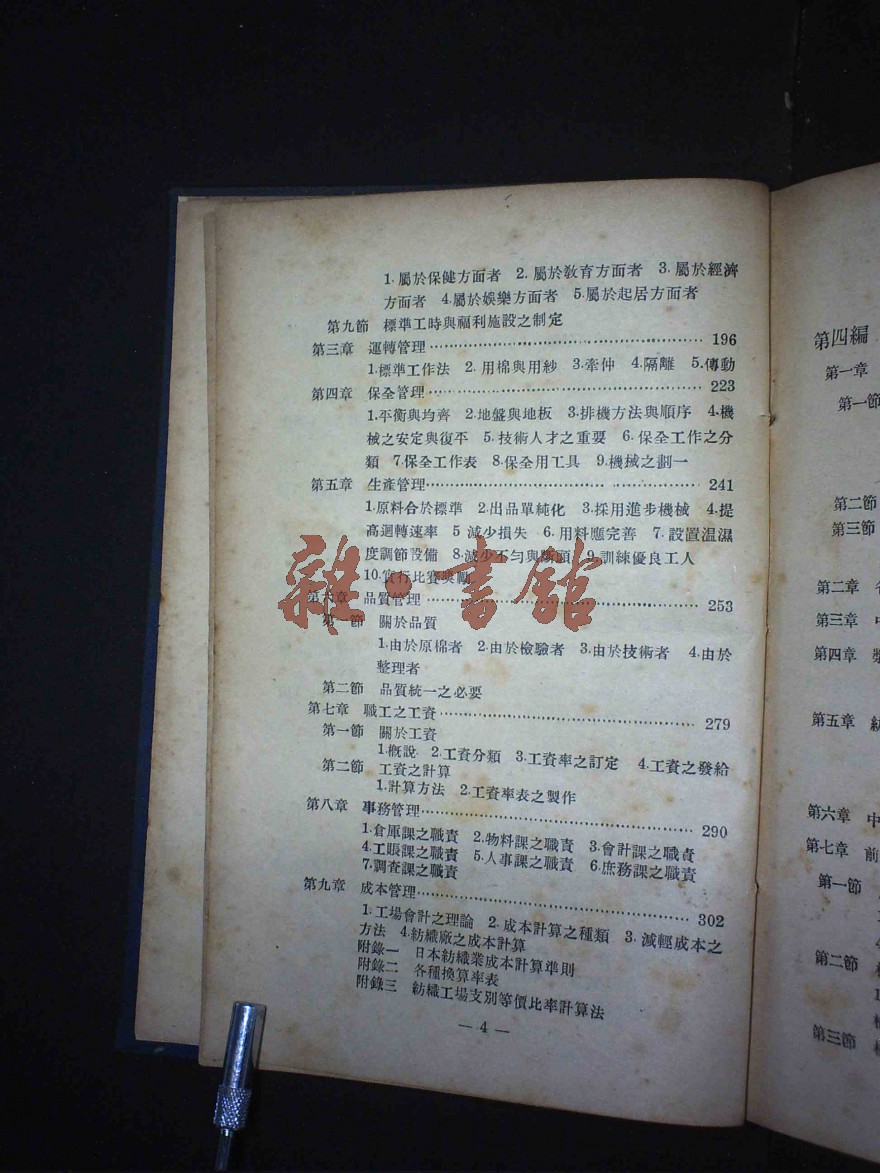 1.屬於保健方面者 2.屬於敎育方面者 3.屬於經濟
方面者 4.屬於娛樂方面者 5.屬於起居方面者
第九節 標準工時與福利施設之制定
第三章 運轉管理 196
1.標準工作法 2.用棉與用紗 3.牽伸 4.隔離 5.傳動
第四章 保全管理 223
1.平衡與均齊 2.地盤與地板 3.排機方法與順序 4.機
械之安定與復平 5.技術人才之重要 6.保全工作之分
類 7.保全工作表 8.保全用工具 9.機械之劃一
第五章 生產管理 241
1.原料合於標準 2.出品單純化 3.採用進步機械 4.提
高迴轉速率 5 減少損失 6.用料應完善 7.設置温濕
度調節設備 8.減少不勻與斷頭 9.訓練優良工人
10.實行比賽奬勵
第六章 品質管理 253
第一節 關於品質
1.由於原棉者 2.由於檢驗者 3.由於技術者 4.由於
整理者
第二節 品質統一之必要
第七章 職工之工資 279
第一節 關於工資
1.槪說 2.工資分類 3.工資率之訂定 4.工資之發給
第二節 工資之計算
1.計算方法 2.工資率表之製作
第八章 事務管理 290
1.倉庫課之職責 2.物料課之職責 3.會計課之職責
4.工賬課之職責 5.人事課之職責 6.庶務課之職責
7.調查課之職責
第九章 成本管理 302
1.工場會計之理論 2.成本計算之種類 3.減輕成本之
方法 4.紡織廠之成本計算
附錄一 日本紡織業成本計算準則
附錄二 各種換算率表
附錄三 紡織工場支別等價比率計算法
— 4 —
雜書館
第四編
第一章
第一節
第二節
第三節
第二章
第三章 中
第四章
第五章 紡
第六章 中
第七章 前
第一節
第二節
第三節